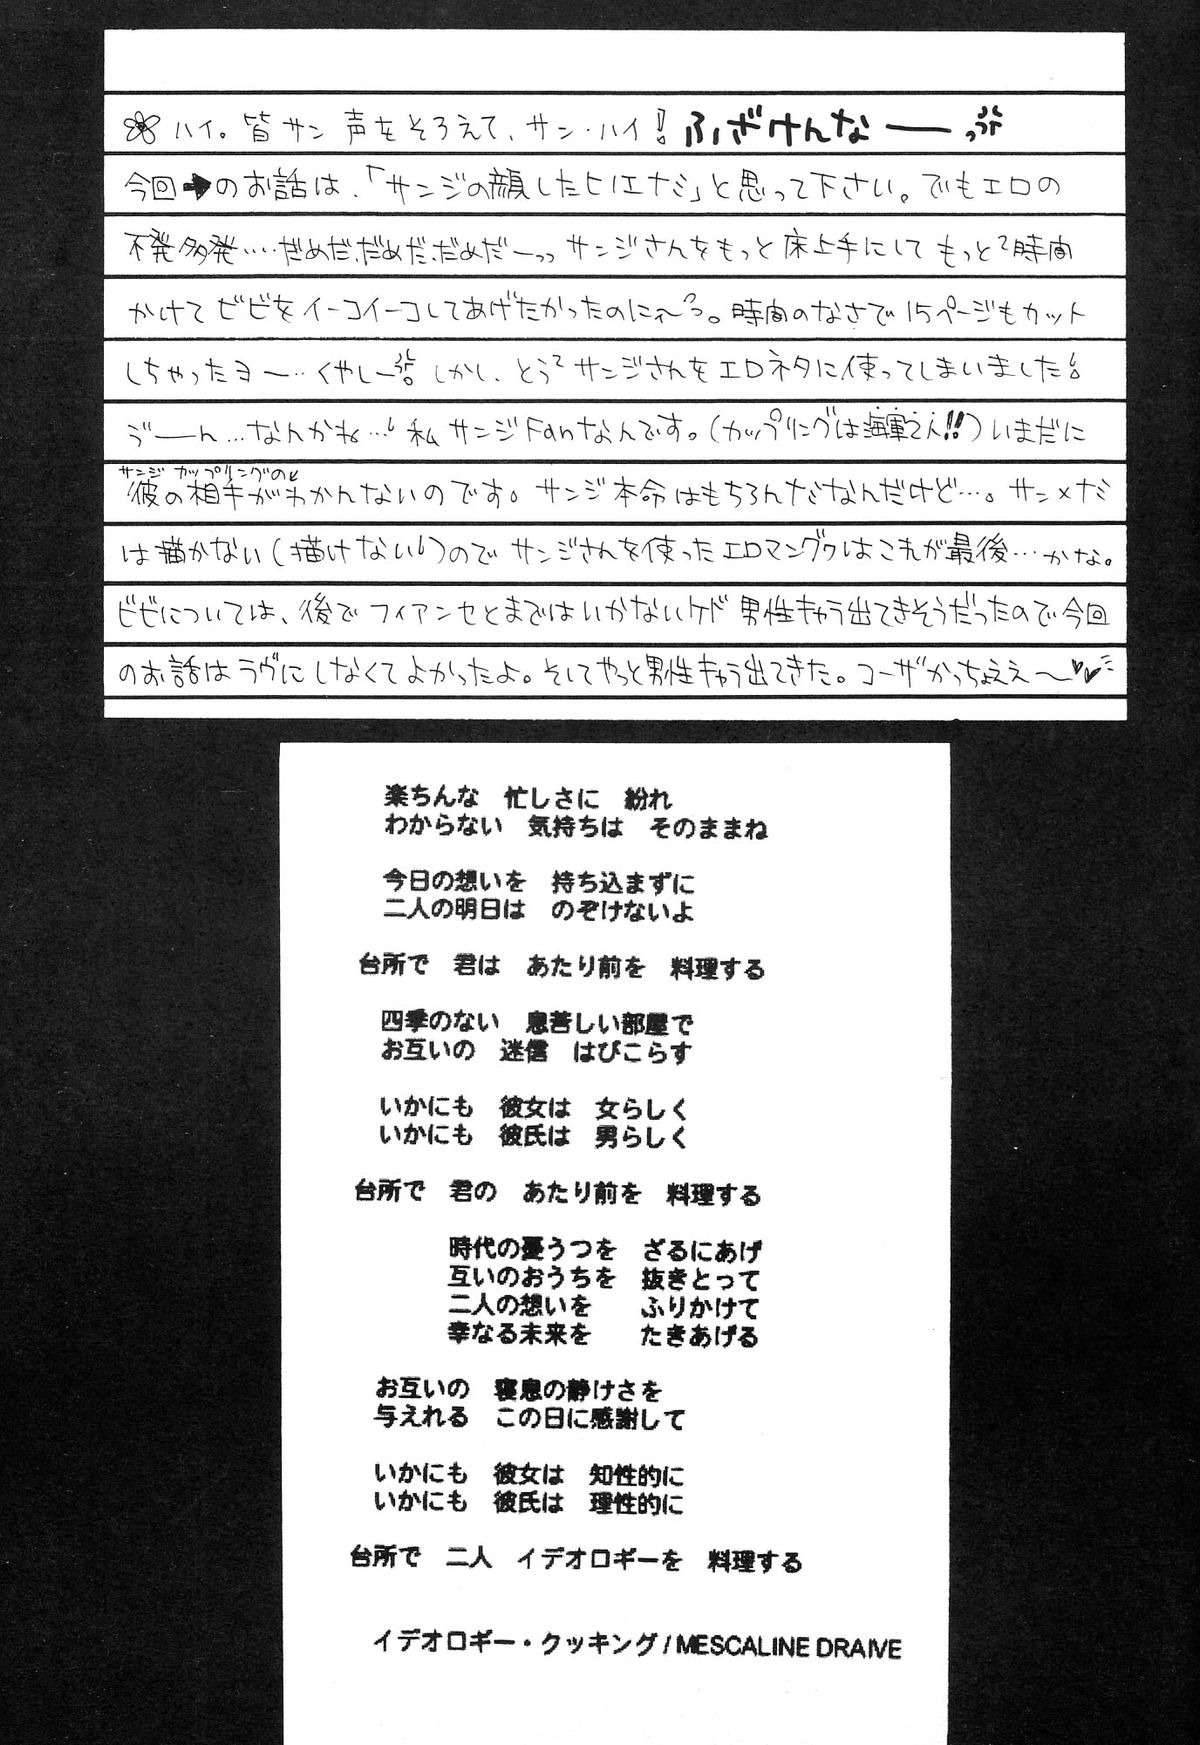 ハイ。皆サン 声をそろえて、サン・ハイ! ふざけんなーっ
今回➡のお話は、「サンジの顔したヒノエナミ」と思って下さい。でもエロの
不発多発‥‥だめだ、だめだ、だめだーっっ サンジさんをもっと床上手にして もっと²時間
かけて ビビを イーコイーコしてあげたかったのにィ〜っ。時間のなさで 15ページもカット
しちゃったヨー‥‥くやしー しかし、とう²サンジさんを エロネタに使ってしまいました
ゔーん…なんかね… 私 サンジFanなんです。(カップリングは海軍さん!!) いまだに
サンジ カップリングの
彼の相手がわかんないのです。サンジ本命はもちろんナミなんだけど…。サン×ナミ
は描かない(描けない)ので サンジさんを使ったエロマンガはこれが最後…かな。
ビビについては、後で フィアンセとまではいかないケド 男性キャラ出てきそうだったので今回
のお話はラヴにしなくてよかったよ。そしてやっと男性キャラ出てきた。コーザかっちょええ〜
楽ちんな 忙しさに 紛れ
わからない 気持ちは そのままね
今日の想いを 持ち込まずに
二人の明日は のぞけないよ
台所で 君は あたり前を 料理する
四季のない 息苦しい部屋で
お互いの 迷信 はびこらす
いかにも 彼女は 女らしく
いかにも 彼氏は 男らしく
台所で 君の あたり前を 料理する
時代の憂うつを ざるにあげ
互いのおうちを 抜きとって
二人の想いを ふりかけて
幸なる未来を たきあげる
お互いの 寝息の静けさを
与えれる この日に感謝して
いかにも 彼女は 知性的に
いかにも 彼氏は 理性的に
台所で 二人 イデオロギーを 料理する
イデオロギー・クッキング / MESCALINE DRAIVE